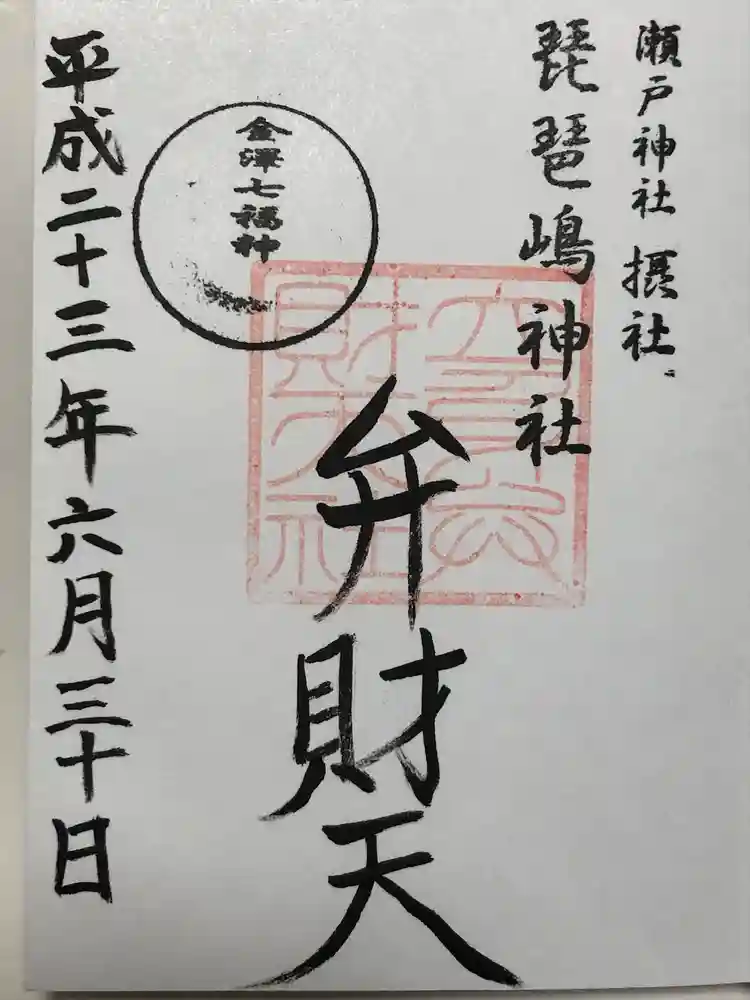 瀬戸神社 摂社
琵琶嶋神社
弁財天
金澤七福神
平成二十三年六月三十日